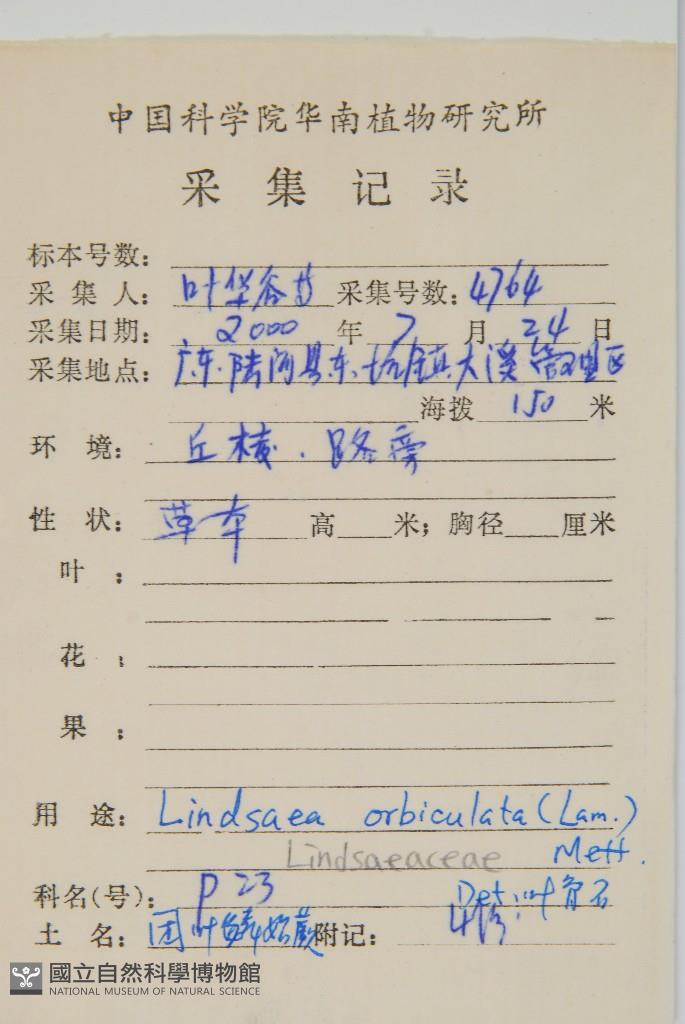 中国科学院华南植物研究所
采集记录
标本号数:
采集人: 叶华谷等 采集号数: 4764
采集日期: 2000 年 7 月 24 日
采集地点: 广东·陆河县东坑镇大溪管理区
海拨 150 米
环境: 丘陵.路旁
性状: 草本 高 米; 胸径 厘米
叶:
花:
果:
用途: Lindsaea orbiculata (Lam.)
Lindsaeaceae Mett.
科名(号): P 23 Det: 叶
土名: 团叶鳞始蕨 附记: 4份
國立自然科學博物館
NATIONAL MUSEUM OF NATURAL SCIENCE